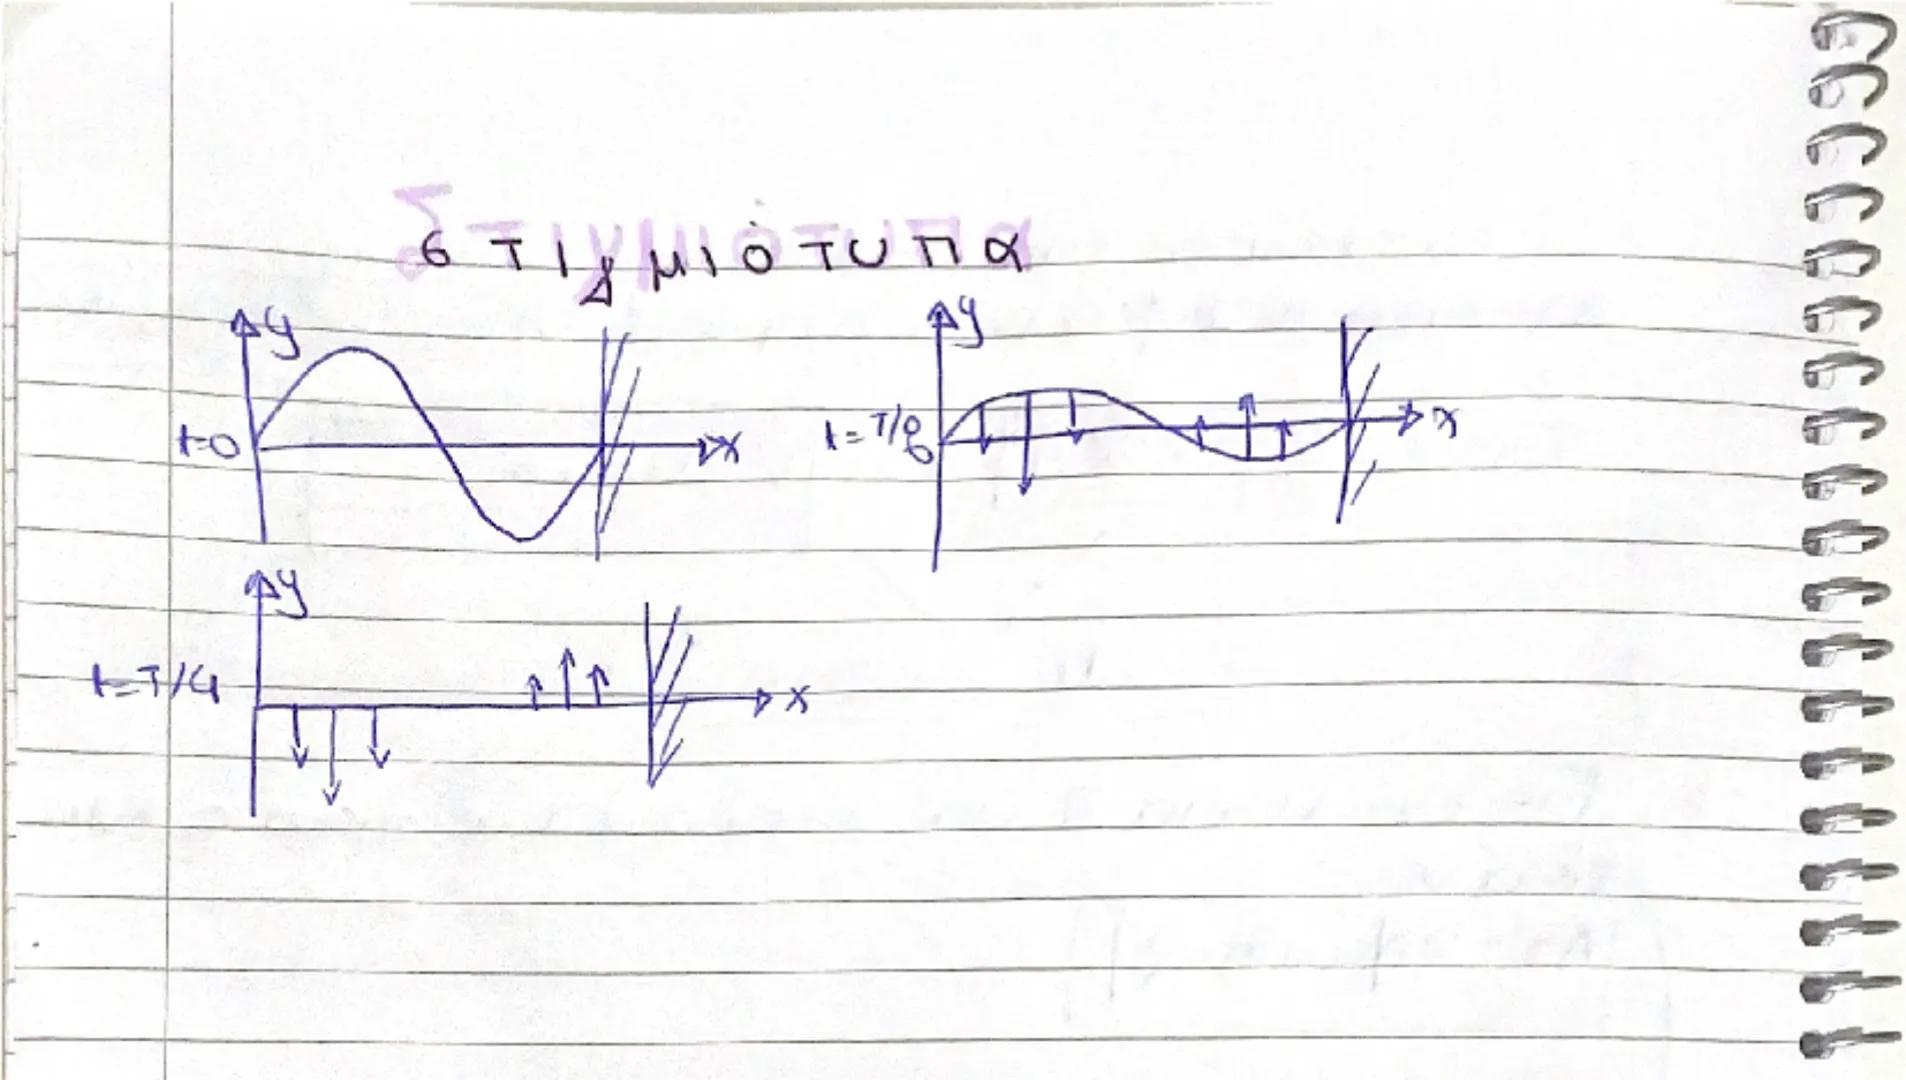 στιγμιότυπα
y
t=0
x
y
t=T/8
x
y
t=T/4
x